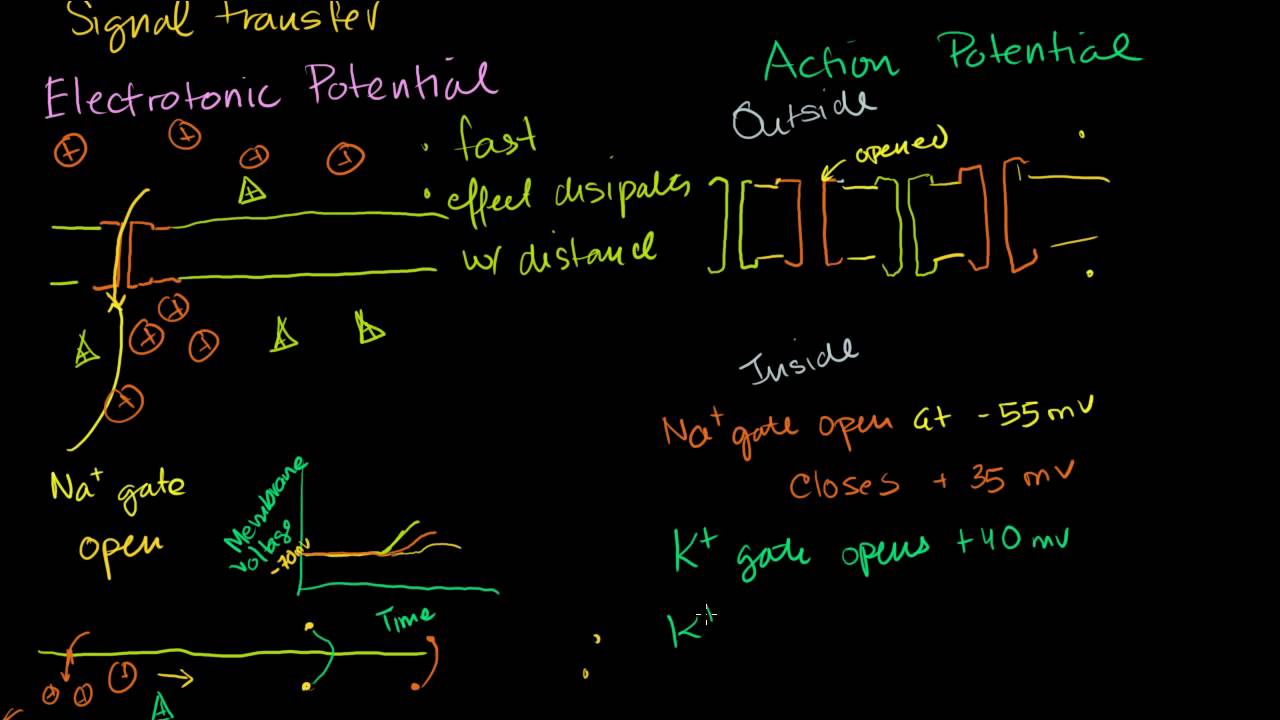 Signal transfer
Electrotonic Potential
• fast
• effect disipates
w/ distance
Na+ gate
open
Membrane
voltage
-70mv
Time
Action Potential
Outside
opened
Inside
Na+ gate open at -55mv
Closes +35 mv
K+ gate opens +40 mv
K+